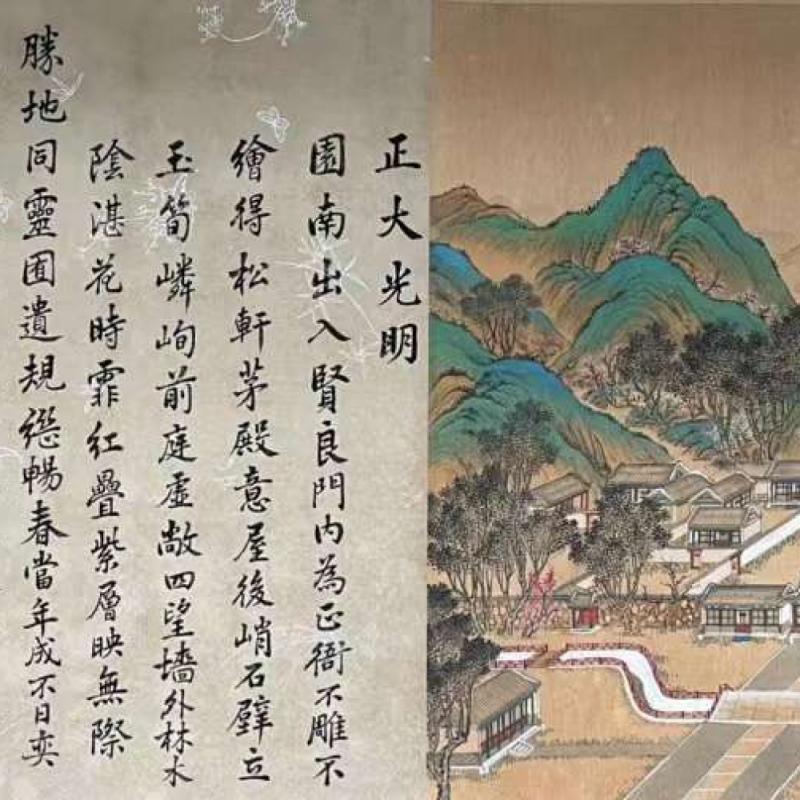 正大光明
園南出入賢良門內為正衙不雕不
繪得松軒茅殿意屋後峭石壁立
玉筍嶙峋前庭虛敞四望墻外林木
陰湛花時霏紅疊紫層映無際
勝地同靈囿遺規繼暢春當年成不日奕